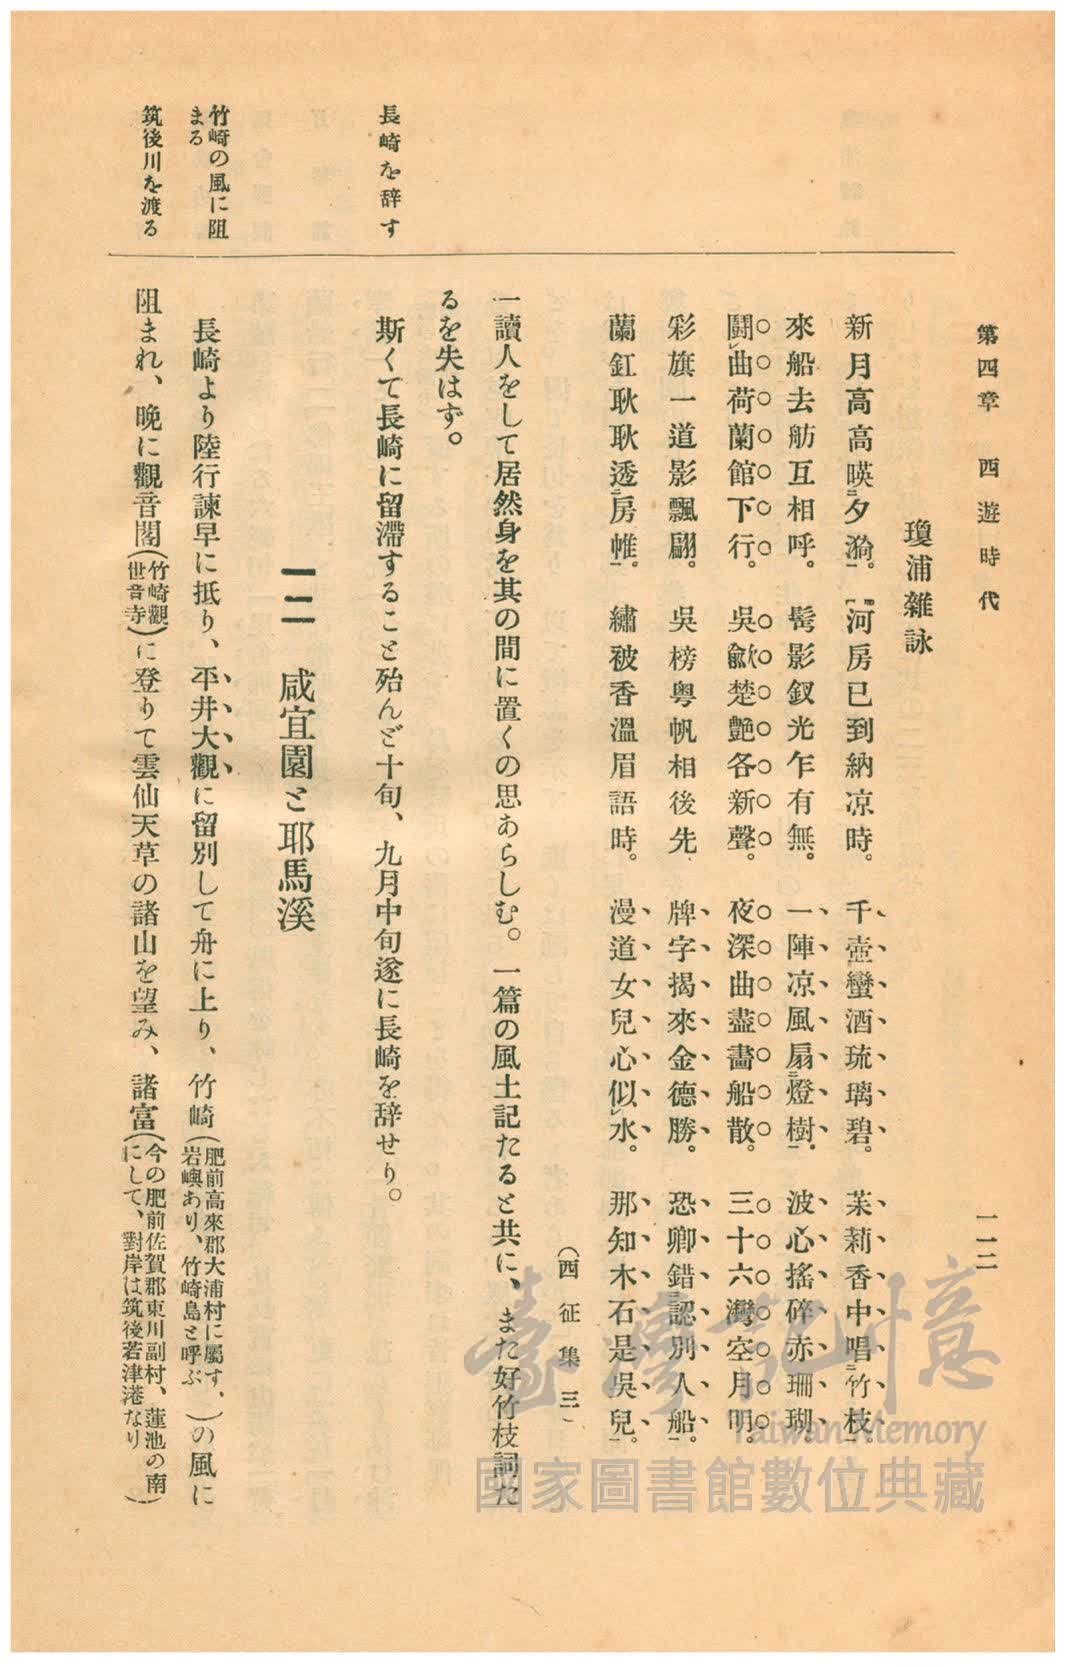 第四章　西遊時代
一一二
瓊浦雜詠
新月高高暎夕漪。河房已到納凉時。千壺蠻酒琉璃碧。茉莉香中唱竹枝。
來船去舫互相呼。髩影釵光乍有無。一陣凉風扇燈樹。波心搖碎赤珊瑚。
鬪曲荷蘭館下行。吳歈楚艶各新聲。夜深曲盡畵船散。三十六灣空月明。
彩旗一道影飄翩。吳榜粤帆相後先　牌字揭來金德勝。恐卿錯認別人船。
蘭釭耿耿透房帷。繡被香溫眉語時。漫道女兒心似水。那知木石是吳兒。
（西征集三）
一讀人をして居然身を其の間に置くの思あらしむ。一篇の風土記たると共に、また好竹枝詞た
るを失はず。
長崎を辞す
斯くて長崎に留滯すること殆んど十旬、九月中旬遂に長崎を辞せり。
一二　咸宜園と耶馬溪
竹崎の風に阻
まる
長崎より陸行諫早に抵り、平井大觀に留別して舟に上り、竹崎（肥前高來郡大浦村に屬す、岩嶼あり、竹崎島と呼ぶ）の風に
筑後川を渡る
阻まれ、晩に觀音閣（竹崎觀世音寺）に登りて雲仙天草の諸山を望み、諸富（今の肥前佐賀郡東川副村、蓮池の南にして、對岸は筑後若津港なり）
臺灣記憶
Taiwan Memory
國家圖書館數位典藏